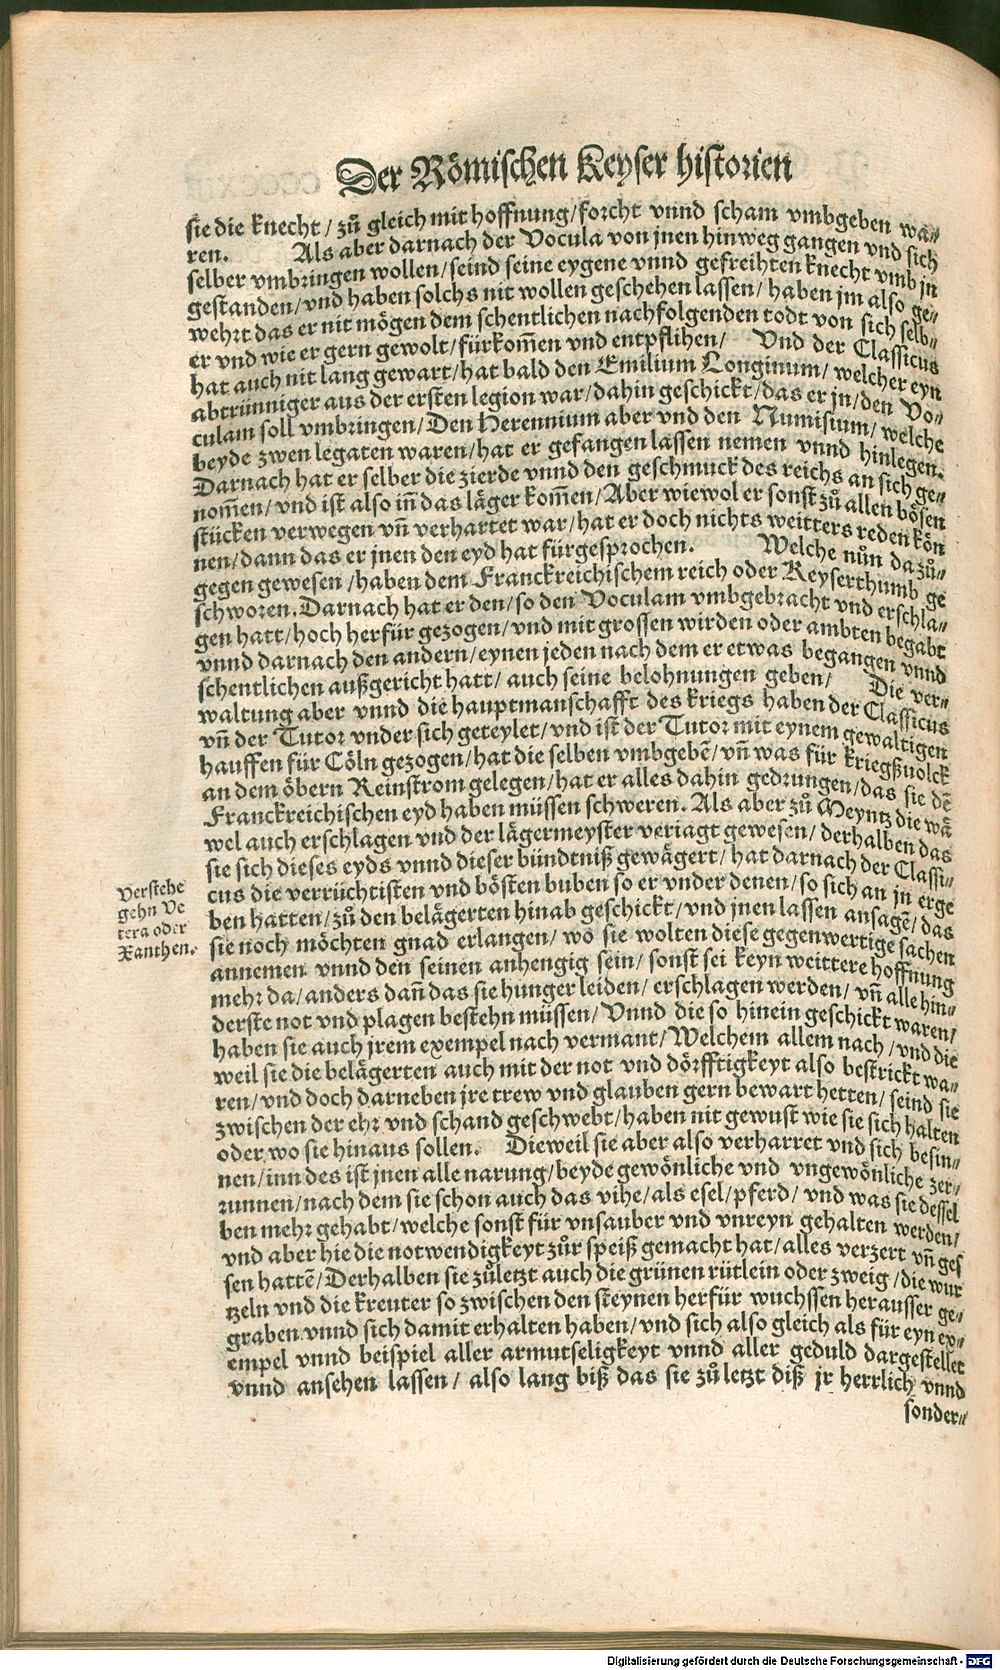 Der Römischen Keyser historien
sie die knecht / zů gleich mit hoffnung / forcht vnnd scham vmbgeben wa⸗
ren. Als aber darnach der Vocula von jnen hinweg gangen vnd sich
selber vmbringen wollen / seind seine eygene vnnd gefreihten knecht vmb jn
gestanden / vnd haben solchs nit wollen geschehen lassen / haben jm also ge⸗
wehrt das er nit mögen dem schentlichen nachfolgenden todt von sich selb⸗
er vnd wie er gern gewolt / fürkom̃en vnd entpflihen / Vnd der Classicus
hat auch nit lang gewart / hat bald den Emilium Longinum / welcher eyn
abtrünniger aus der ersten legion war / dahin geschickt / das er jn / den Vo⸗
culam soll vmbringen / Den Herennium aber vnd den Numisium / welche
beyde zwen legaten waren / hat er gefangen lassen nemen vnnd hinlegen.
Darnach hat er selber die zierde vnnd den geschmuck des reichs an sich ge⸗
nom̃en / vnd ist also iñ das läger kom̃en / Aber wiewol er sonst zů allen bösen
stücken verwegen vñ verhartet war / hat er doch nichts weitters reden kön
nen / dann das er jnen den eyd hat fürgesprochen. Welche nůn da zů⸗
gegen gewesen / haben dem Franckreichischem reich oder Keyserthumb ge
schworen. Darnach hat er den / so den Voculam vmbgebracht vnd erschla⸗
gen hatt / hoch herfür gezogen / vnd mit grossen wirden oder ambten begabt
vnnd darnach den andern / eynen jeden nach dem er etwas begangen vnnd
schentlichen außgericht hatt / auch seine belohnungen geben / Die ver⸗
waltung aber vnnd die hauptmanschafft des kriegs haben der Classicus
vñ der Tutor vnder sich geteylet / vnd ist der Tutor mit eynem gewaltigen
hauffen für Cöln gezogen / hat die selben vmbgebẽ / vñ was für kriegßuolck
an dem öbern Reinstrom gelegen / hat er alles dahin gedrungen / das sie dẽ
Franckreichischen eyd haben müssen schweren. Als aber zů Meyntz die wä
wel auch erschlagen vnd der lägermeyster veriagt gewesen / derhalben das
sie sich dieses eyds vnnd dieser bündtniß gewägert / hat darnach der Classi⸗
cus die verrüchtisten vnd bösten buben so er vnder denen / so sich an jn erge
ben hatten / zů den belägerten hinab geschickt / vnd jnen lassen ansagẽ / das
sie noch möchten gnad erlangen / wo sie wolten diese gegenwertige sachen
annemen vnnd den seinen anhengig sein / sonst sei keyn weittere hoffnung
mehr da / anders dañ das sie hunger leiden / erschlagen werden / vñ alle hin⸗
derste not vnd plagen bestehn müssen / Vnnd die so hinein geschickt waren /
haben sie auch jrem exempel nach vermant / Welchem allem nach / vnd die
weil sie die belägerten auch mit der not vnd dörfftigkeyt also bestrickt wa⸗
ren / vnd doch darneben jre trew vnd glauben gern bewart hetten / seind sie
zwischen der ehr vnd schand geschwebt / haben nit gewust wie sie sich halten
oder wo sie hinaus sollen. Dieweil sie aber also verharret vnd sich besin⸗
nen / inn des ist jnen alle narung / beyde gewönliche vnd vngewönliche zer⸗
runnen / nach dem sie schon auch das vihe / als esel / pferd / vnd was sie dessel
ben mehr gehabt / welche sonst für vnsauber vnd vnreyn gehalten werden /
vnd aber hie die notwendigkeyt zůr speiß gemacht hat / alles verzert vñ ges
sen hattẽ / Derhalben sie zůletzt auch die grünen rütlein oder zweig / die wur
tzeln vnd die kreuter so zwischen den steynen herfür wuchssen herausser ge⸗
graben vnnd sich damit erhalten haben / vnd sich also gleich als für eyn ex⸗
empel vnnd beispiel aller armutseligkeyt vnnd aller geduld dargestellet
vnnd ansehen lassen / also lang biß das sie zůletzt diß jr herrlich vnnd
sonder⸗
Verstehe
gehn Ve
tera oder
Xanthen.
Digitalisierung gefördert durch die Deutsche Forschungsgemeinschaft - DFG